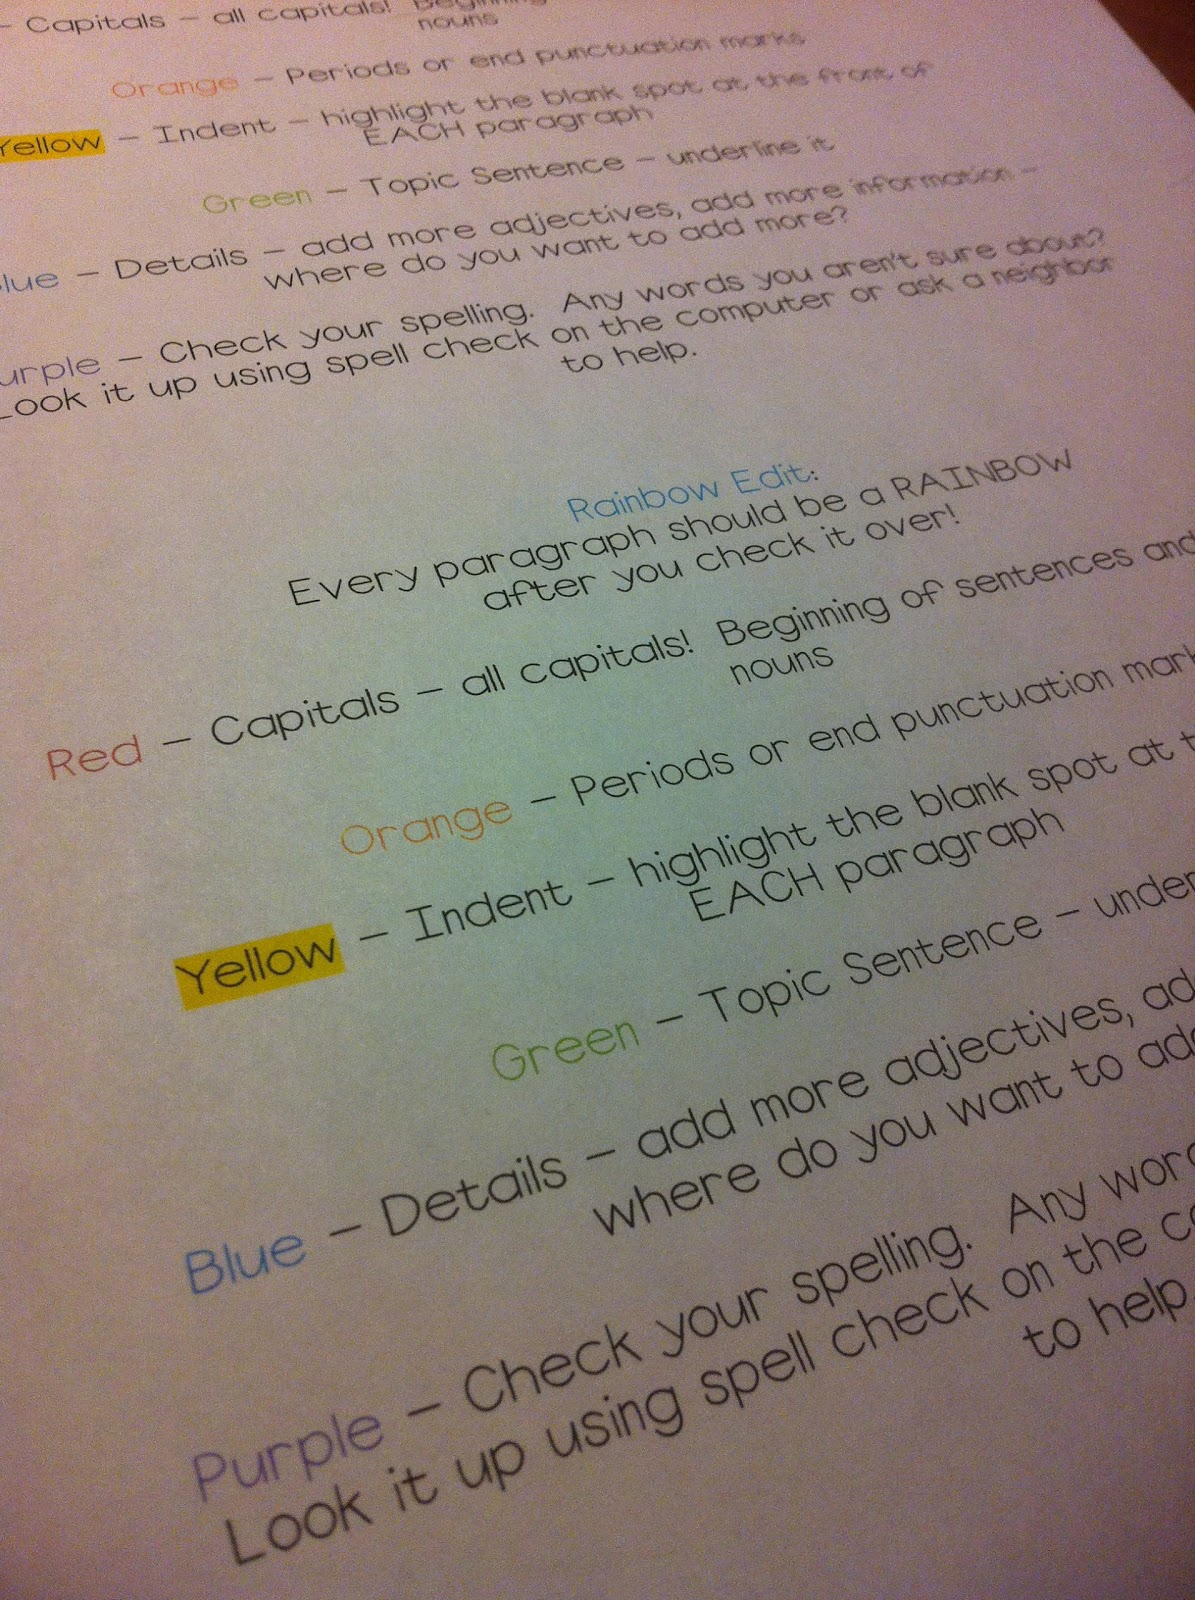 – Capitals – all capitals! Beginning
nouns
Orange – Periods or end punctuation marks
Yellow – Indent – highlight the blank spot at the front of
EACH paragraph
Green – Topic Sentence – underline it
lue – Details – add more adjectives, add more information –
where do you want to add more?
urple – Check your spelling. Any words you aren't sure about?
Look it up using spell check on the computer or ask a neighbor
to help.
Rainbow Edit:
Every paragraph should be a RAINBOW
after you check it over!
Red – Capitals – all capitals! Beginning of sentences and
nouns
Orange – Periods or end punctuation mark
Yellow – Indent – highlight the blank spot at t
EACH paragraph
Green – Topic Sentence – under
Blue – Details – add more adjectives, ad
where do you want to add
Purple – Check your spelling. Any word
Look it up using spell check on the co
to help.